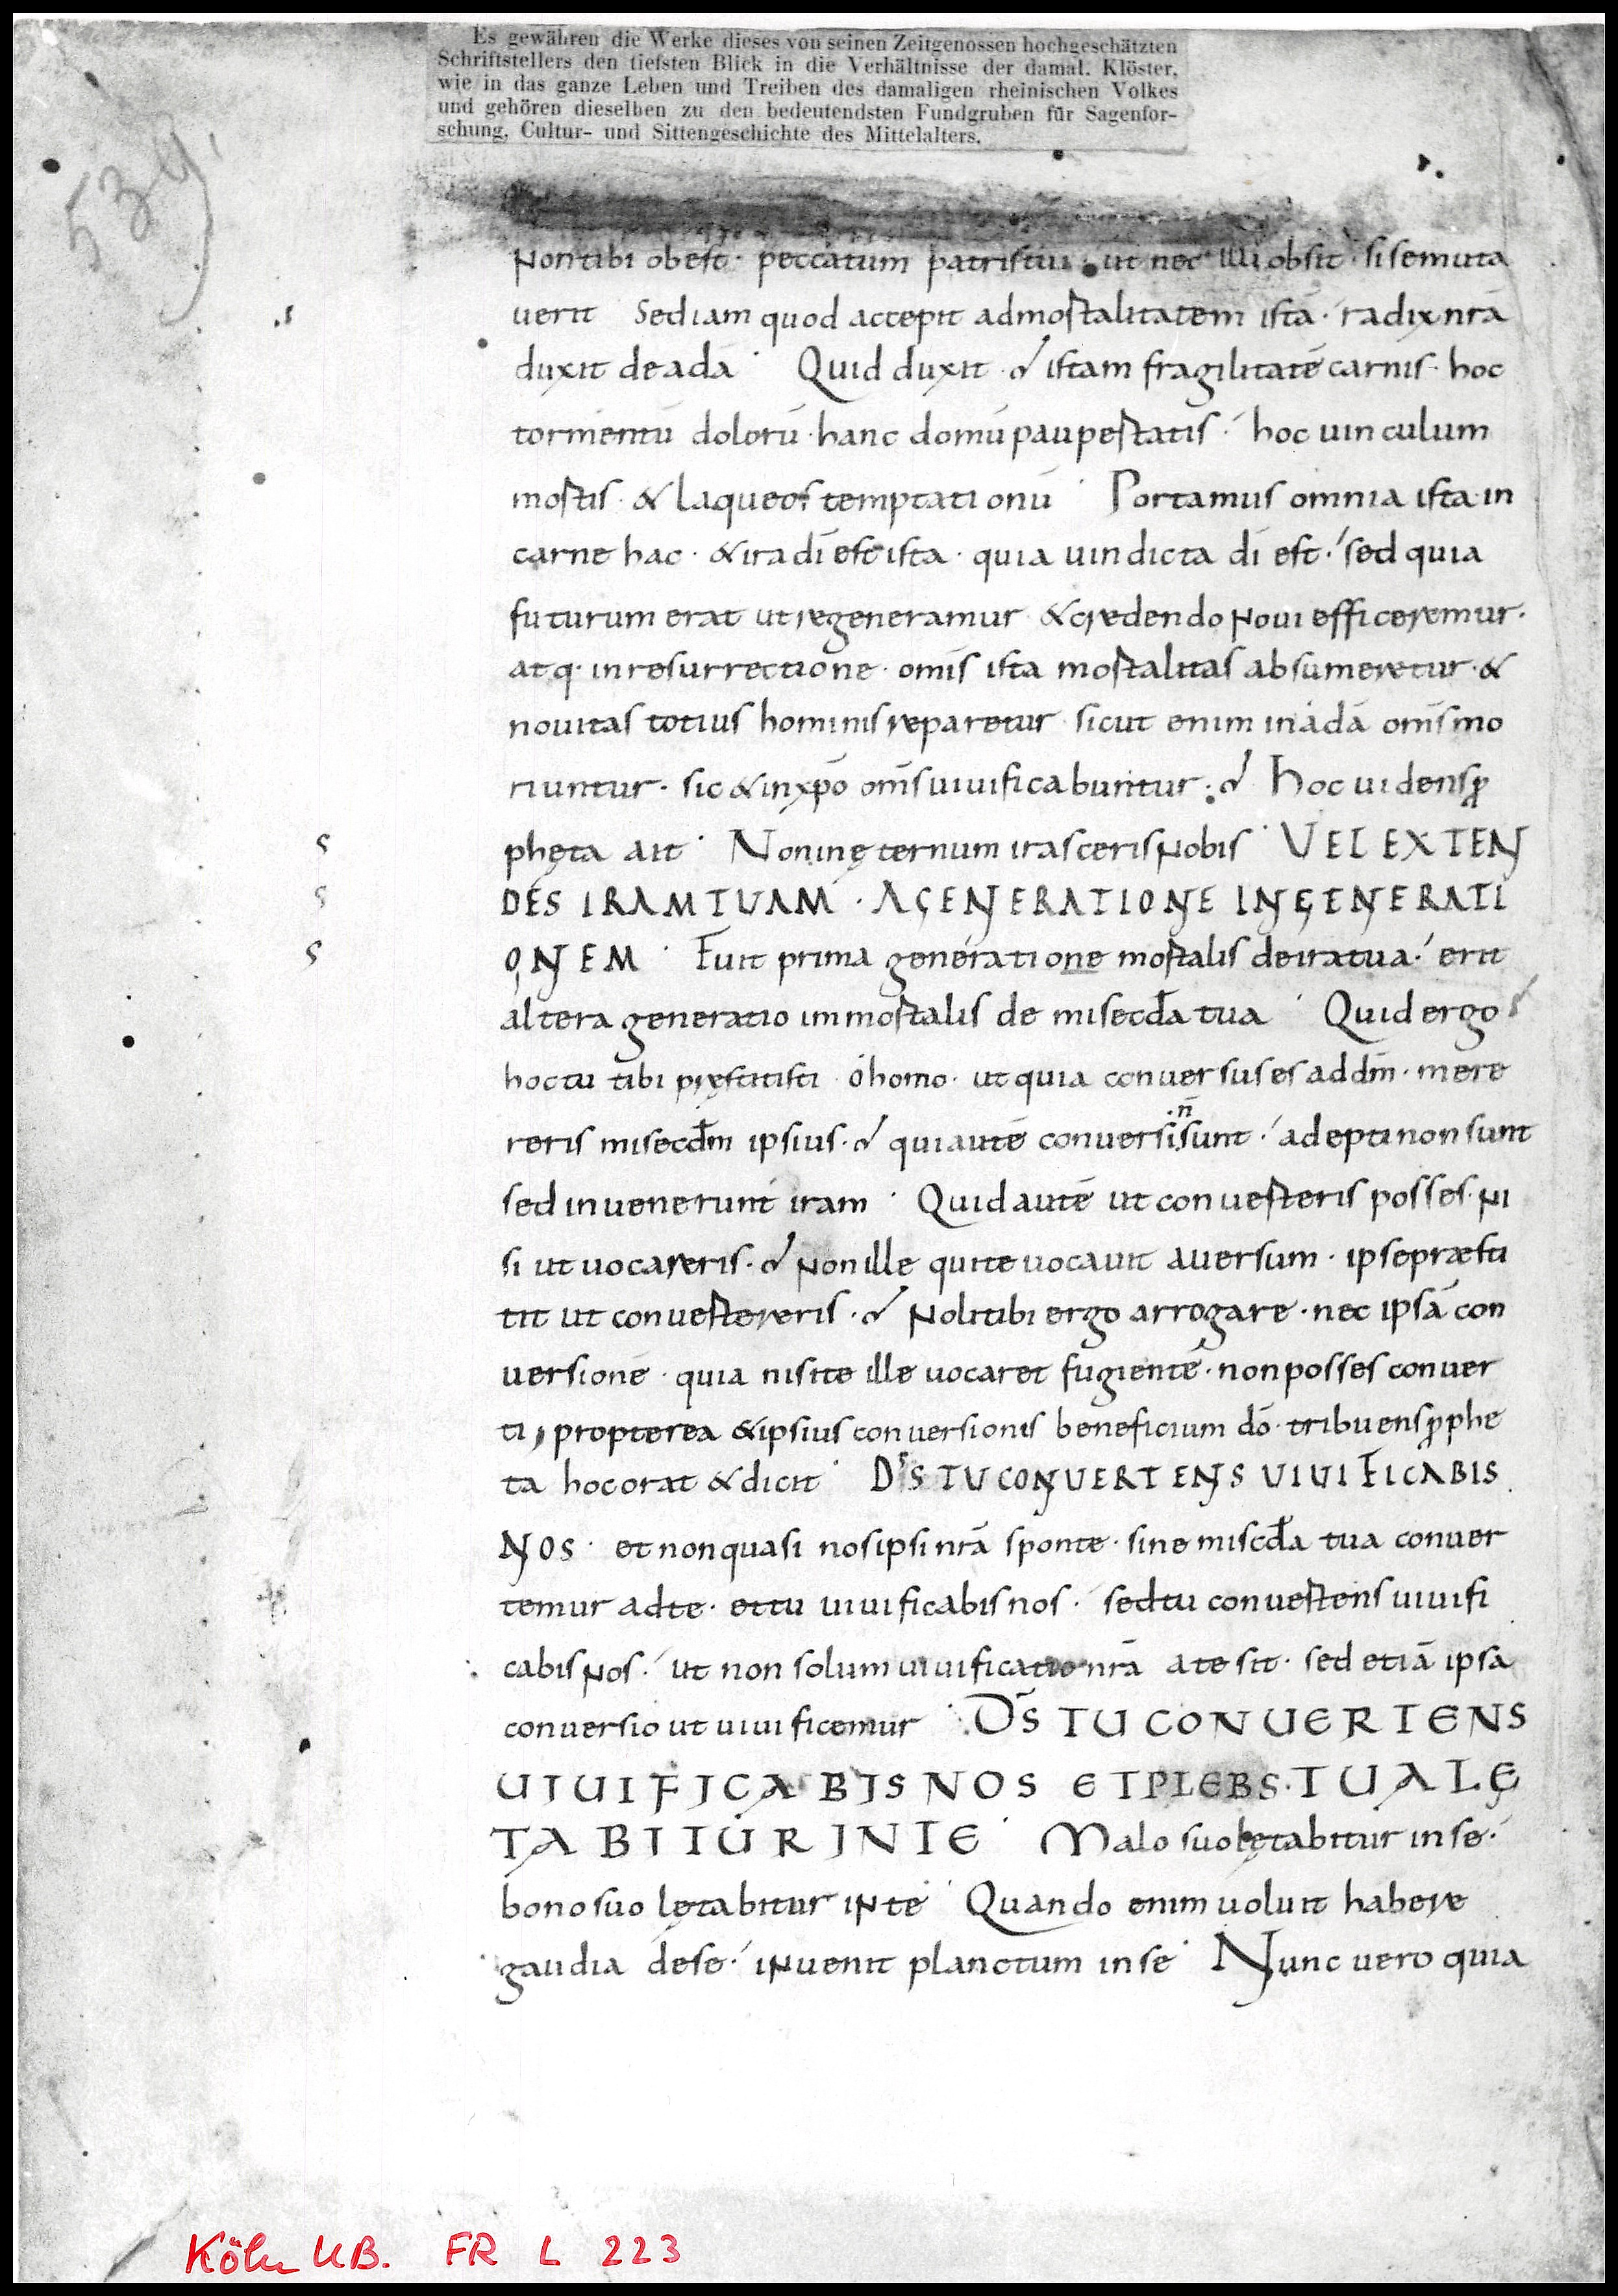 Es gewähren die Werke dieses von seinen Zeitgenossen hochgeschätzten
Schriftstellers den tiefsten Blick in die Verhältnisse der damal. Klöster,
wie in das ganze Leben und Treiben des damaligen rheinischen Volkes
und gehören dieselben zu den bedeutendsten Fundgruben für Sagenfor-
schung, Cultur- und Sittengeschichte des Mittelalters.
539
Non tibi obest · peccatum patris tui · ut nec illi obsit · si se muta
uerit Sed iam quod accepit ad mortalitatem istā · radix nrā
duxit de adā · Quid duxit · istam fragilitatē carnis · hoc
tormentū dolorū · hanc domū paupertatis · hoc uinculum
mortis · & laqueos temptationū · Portamus omnia ista in
carne hac · & ira dī est ista · quia uindicta dī est · sed quia
futurum erat ut regeneramur & credendo noui efficeremur ·
atq· in resurrectione · omīs ista mortalitas absumeretur · &
nouitas totius hominis reparetur · sicut enim in adā omīs mo
riuntur · sic & in xpō omīs uiuificabuntur · Hoc uidens ꝓ
phęta ait · Non in ęternum irasceris nobis · VEL EXTEN
DES IRAM TUAM · A GENERATIONE IN GENERATI
ONEM · Fuit prima generatione mortalis de ira tua · erit
altera generatio immortalis de misecđa tua · Quid ergo
hoc tu tibi pręstitisti · ó homo · ut quia conuersus es ad dm̄ · mere
reris misecđm ipsius · qui autē conuersi ·n̄ sunt · adepti non sunt
sed inuenerunt iram · Quid autē ut conuerteris posses · ni
si ut uocareris · Non ille qui te uocauit auersum · ipse præsti
tit ut conuertereris · Noli tibi ergo arrogare · nec ipsā con
uersionē · quia nisi te ille uocaret fugientē · non posses conuer
ti, propterea & ipsius conuersionis beneficium dō · tribuens ꝓphe
ta hoc orat & dicit · DS TU CONUERTENS UIUIFICABIS
NOS · et non quasi nos ipsi nrā sponte · sine miscđa tua conuer
temur ad te · et tu uiuificabis nos · sed tu conuertens uiuifi
cabis nos · ut non solum uiuificatio nrā a te sit · sed etiā ipsa
conuersio ut uiuificemur · D̄S TU CONUERTENS
UIUIFICABIS NOS ET PLEBS · TUA LĘ
TABITUR IN TE · Malo suo lętabitur in se ·
bono suo lętabitur in te · Quando enim uoluit habere
gaudia de se · inuenit planctum in se · Nunc uero quia
Köln UB. FR L 223